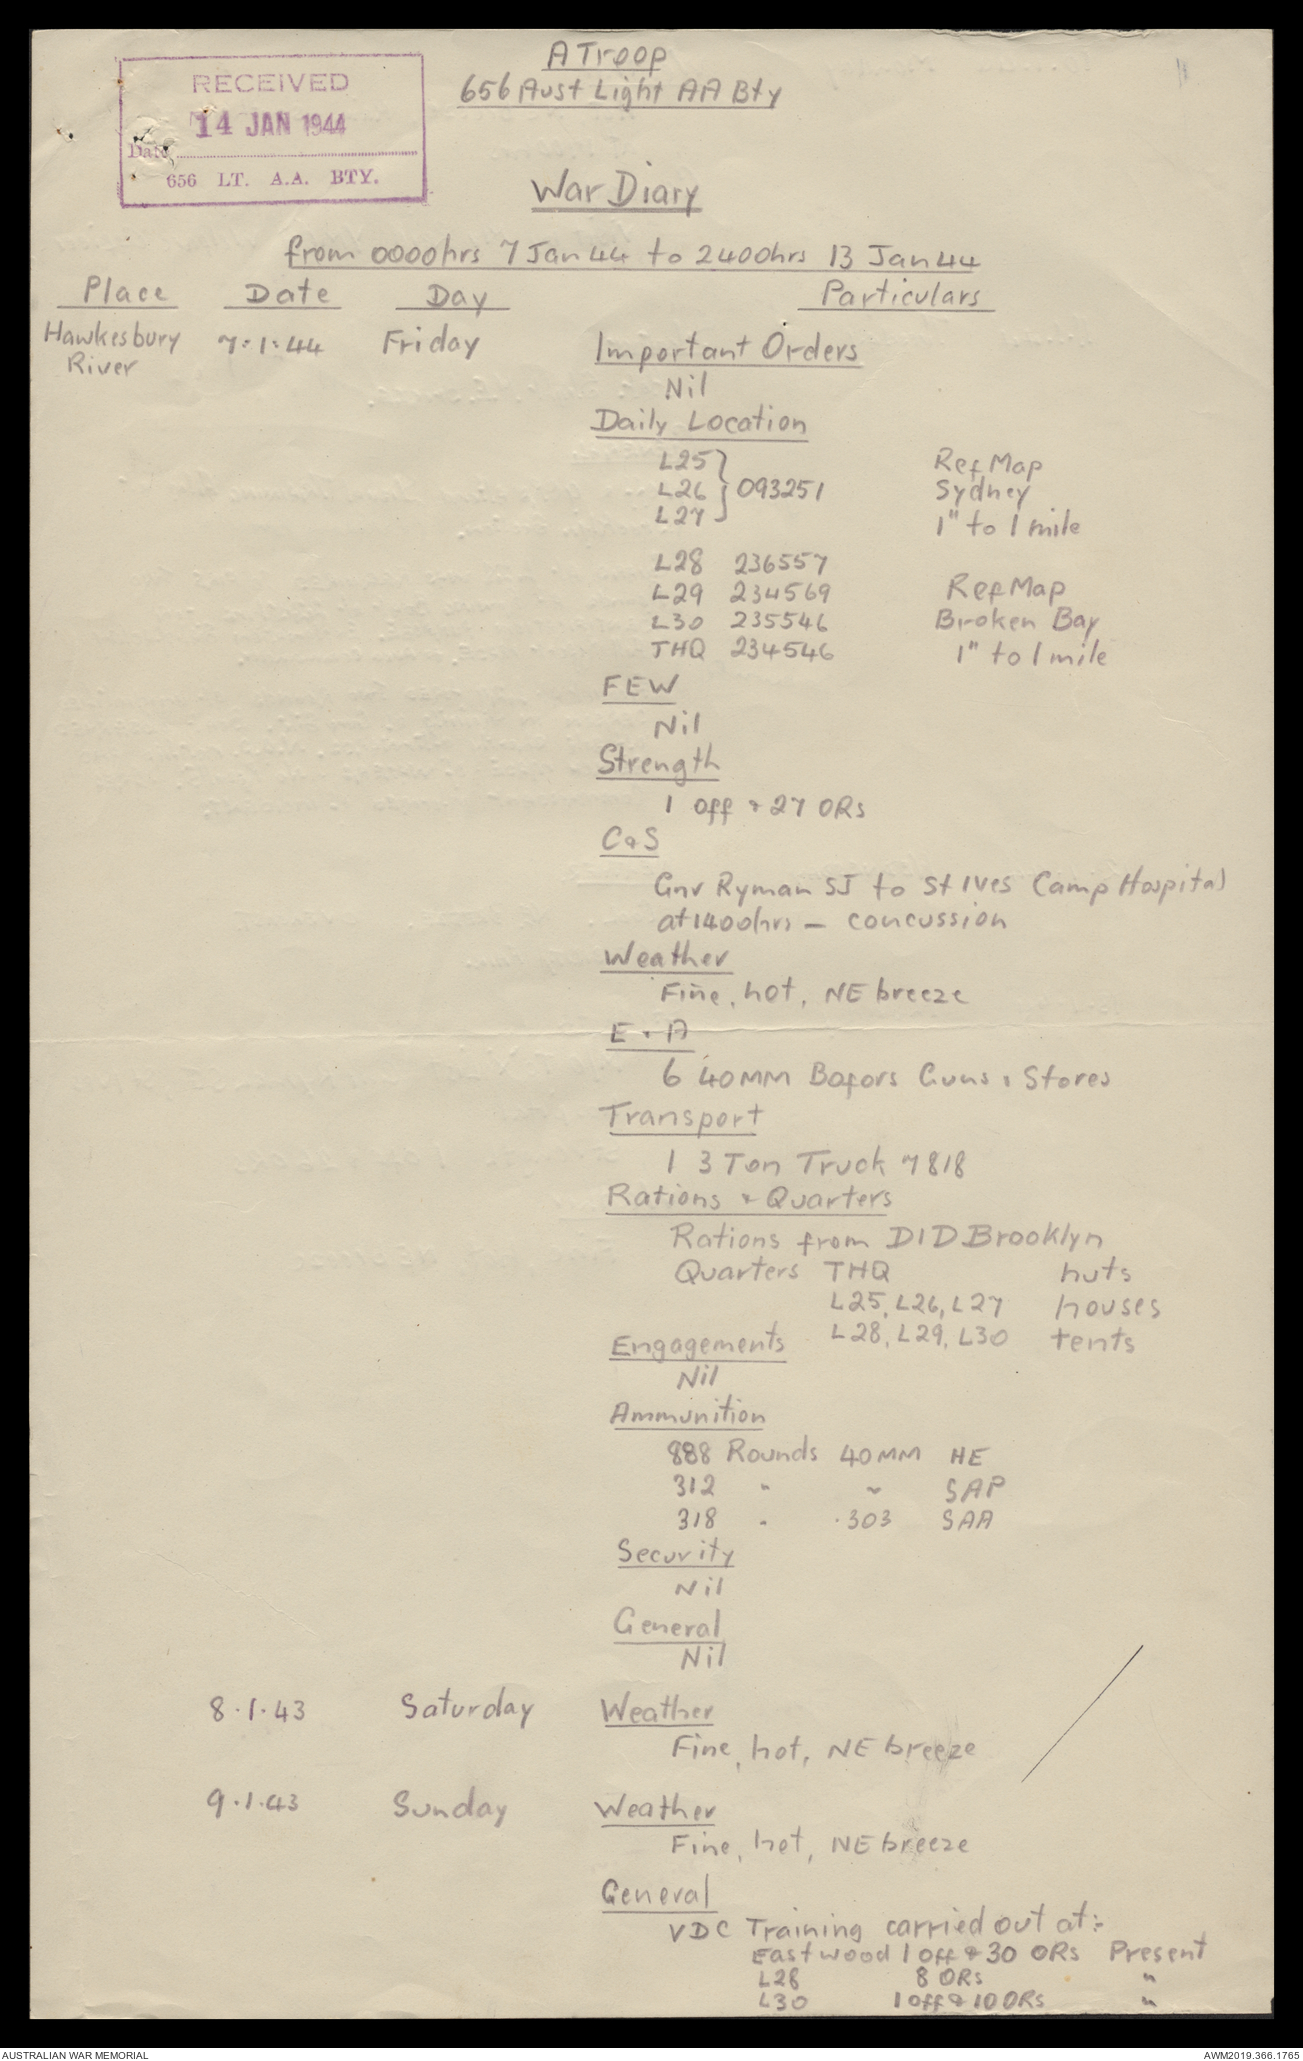 A Troop
656 Aust Light AA Bty
RECEIVED
14 JAN 1944
Date
656 LT. A.A. BTY.
War Diary
from 0000hrs 7 Jan 44 to 2400hrs 13 Jan 44
Place Date Day Particulars
Hawkesbury River 7.1.44 Friday
Important Orders
Nil
Daily Location
L25 } Ref Map
L26 } 093251 Sydney
L27 } 1" to 1 mile
L28 236557
L29 234569 Ref Map
L30 235546 Broken Bay
THQ 234546 1" to 1 mile
FEW
Nil
Strength
1 Off & 27 ORs
C & S
Gnr Ryman SJ to St Ives Camp Hospital
at 1400hrs – concussion
Weather
Fine, hot, NE breeze
E & A
6 40MM Bofors Guns & Stores
Transport
1 3 Ton Truck 7818
Rations & Quarters
Rations from DID Brooklyn
Quarters THQ huts
L25, L26, L27 houses
L28, L29, L30 tents
Engagements
Nil
Ammunition
888 Rounds 40MM HE
312 " " SAP
318 " .303 SAA
Security
Nil
General
Nil
8.1.43 Saturday Weather
Fine, hot, NE breeze
9.1.43 Sunday Weather
Fine, hot, NE breeze
General
VDC Training carried out at:-
Eastwood 1 Off & 30 ORs Present
L28 8 ORs "
L30 1 Off & 10 ORs "
AUSTRALIAN WAR MEMORIAL
AWM2019.366.1765